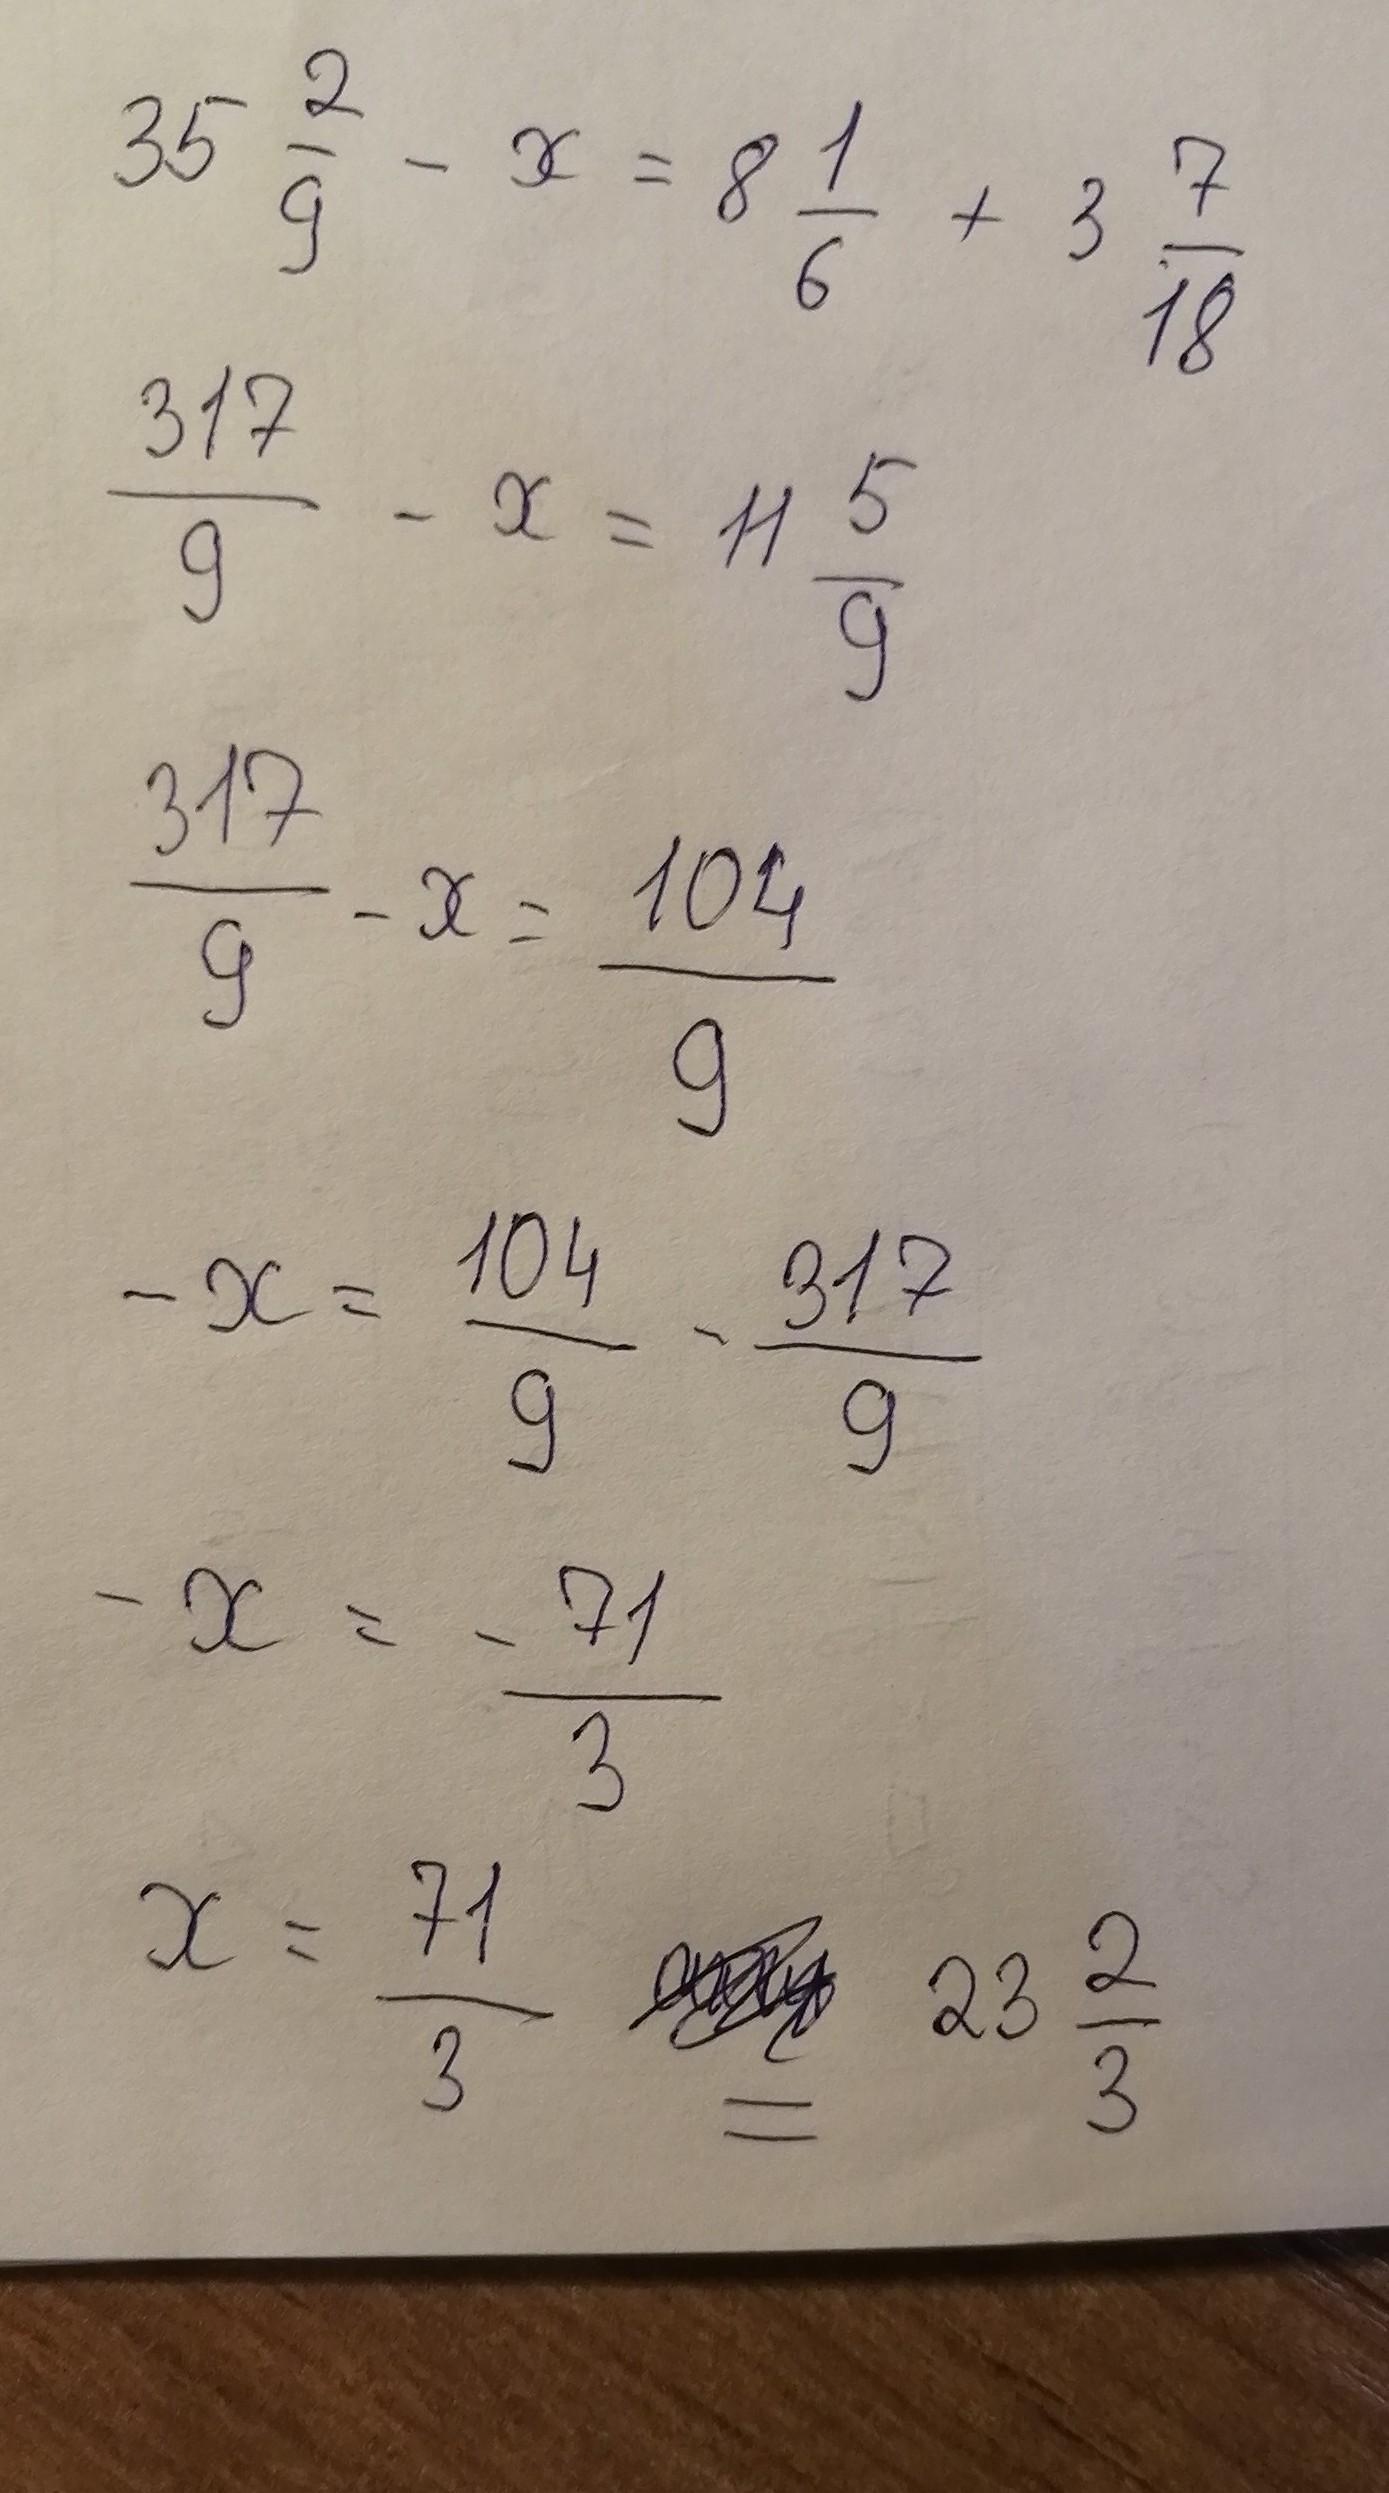 35 2/9 - x = 8 1/6 + 3 7/18
317/9 - x = 11 5/9
317/9 - x = 104/9
-x = 104/9 - 317/9
-x = -71/3
x = 71/3 = 23 2/3